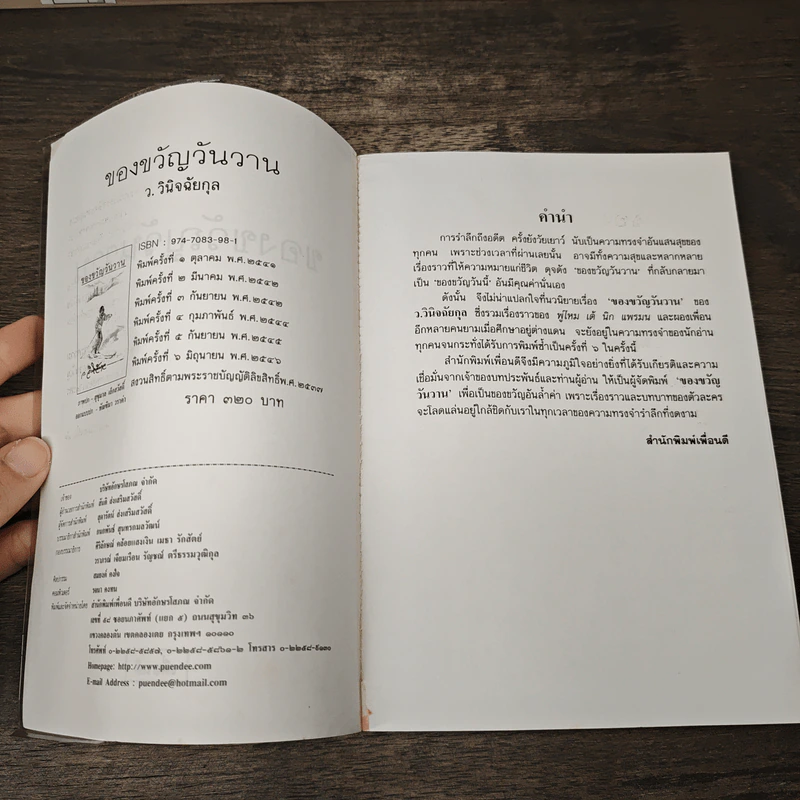 ของขวัญวันวาน
ว. วินิจฉัยกุล
ISBN : 974-7083-98-1
ของขวัญวันวาน
พิมพ์ครั้งที่ ๑ ตุลาคม พ.ศ.๒๕๔๑
พิมพ์ครั้งที่ ๒ มีนาคม พ.ศ.๒๕๔๒
พิมพ์ครั้งที่ ๓ กันยายน พ.ศ.๒๕๔๒
พิมพ์ครั้งที่ ๔ กุมภาพันธ์ พ.ศ.๒๕๔๔
พิมพ์ครั้งที่ ๕ กันยายน พ.ศ.๒๕๔๕
พิมพ์ครั้งที่ ๖ มิถุนายน พ.ศ.๒๕๔๖
สงวนสิทธิ์ตามพระราชบัญญัติลิขสิทธิ์พ.ศ.๒๕๓๗
ราคา ๓๒๐ บาท
เจ้าของ บริษัทอักษรโสภณ จำกัด
ผู้อำนวยการสำนักพิมพ์ สันติ ส่งเสริมสวัสดิ์
ผู้จัดการสำนักพิมพ์ สุดารัตน์ ส่งเสริมสวัสดิ์
บรรณาธิการสำนักพิมพ์ กนกพันธ์ สุนทรกมลวัฒน์
กองบรรณาธิการ ศิริลักษณ์ คล้อยแสงเงิน เมธา รักสัตย์
วราภรณ์ เจียมเรือน รัญชณ์ ตรีธรรมวุฒิกุล
พิมพ์และจัดจำหน่ายโดย สำนักพิมพ์เพื่อนดี บริษัทอักษรโสภณ จำกัด
เลขที่ ๕๘ ซอยนภาศัพท์ (แยก ๕) ถนนสุขุมวิท ๓๖
แขวงคลองตัน เขตคลองเตย กรุงเทพฯ ๑๐๑๑๐
โทรศัพท์ ๐-๒๒๕๘-๕๘๕๗, ๐-๒๒๕๘-๕๘๖๑-๒ โทรสาร
Homepage: http://www.puendee.com
E-mail Address : puendee@hotmail.com
คำนำ
การรำลึกถึงอดีต ครั้งยังวัยเยาว์ นับเป็นความทรงจำอันแสนสุขของ
ทุกคน เพราะช่วงเวลาที่ผ่านเลยนั้น อาจมีทั้งความสุขและหลากหลาย
เรื่องราวที่ให้ความหมายแก่ชีวิต ดุจดัง 'ของขวัญวันวาน' ที่กลับกลายมา
เป็น 'ของขวัญวันนี้' อันมีคุณค่านั่นเอง
ดังนั้น จึงไม่น่าแปลกใจที่นวนิยายเรื่อง 'ของขวัญวันวาน' ของ
ว.วินิจฉัยกุล ซึ่งรวมเรื่องราวของ พู่ไหม เต้ นิก แพรมน และผองเพื่อน
อีกหลายคนยามเมื่อศึกษาอยู่ต่างแดน จะยังอยู่ในความทรงจำของนักอ่าน
ทุกคนจนกระทั่งได้รับการพิมพ์ซ้ำเป็นครั้งที่ ๖ ในครั้งนี้
สำนักพิมพ์เพื่อนดีจึงมีความภูมิใจอย่างยิ่งที่ได้รับเกียรติและความ
เชื่อมั่นจากเจ้าของบทประพันธ์และท่านผู้อ่าน ให้เป็นผู้จัดพิมพ์ 'ของขวัญ
วันวาน' เพื่อเป็นของขวัญอันล้ำค่า เพราะเรื่องราวและบทบาทของตัวละคร
จะโลดแล่นอยู่ใกล้ชิดกับเราในทุกเวลาของความทรงจำรำลึกที่งดงาม
สำนักพิมพ์เพื่อนดี